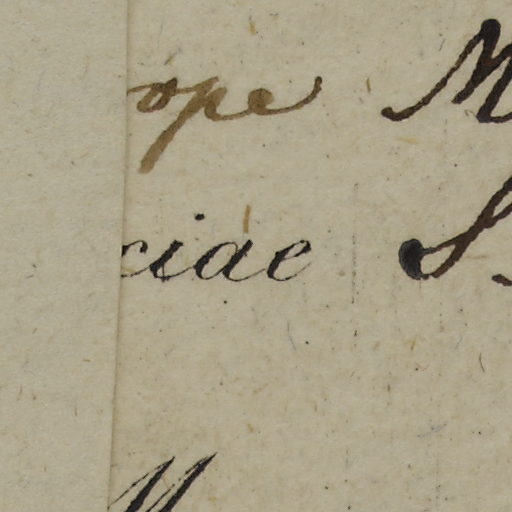 ope M
ciae S
M